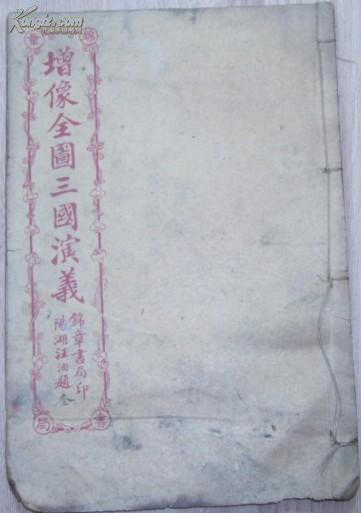 Kongfz.com
增像全圖三國演義
錦章書局印
陽湖汪洵題
錦章書局